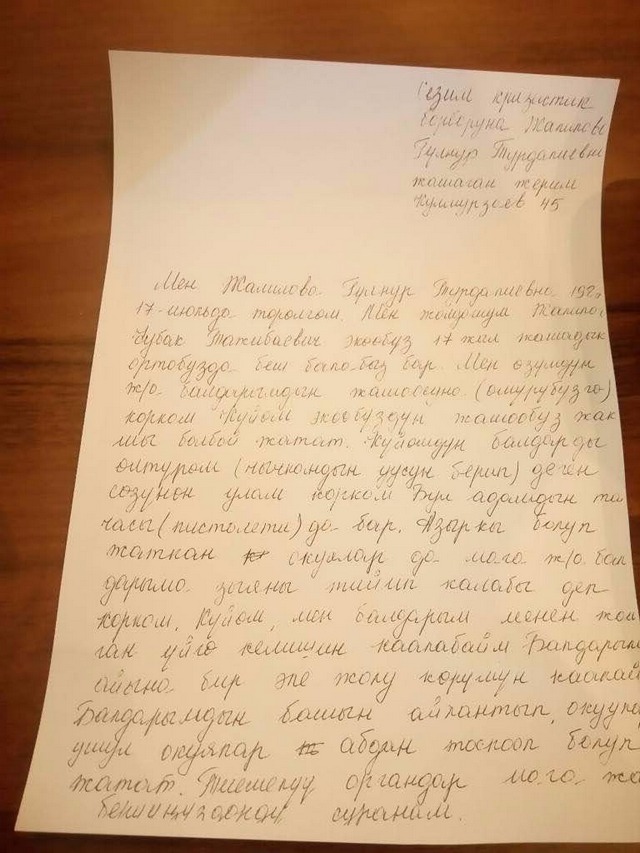 Сезим кризистик
борборуна Жалилова
Гулнур Турдалиевна
жашаган жерим
Кулмурзаев 45
Мен Жалилова Гулнур Турдалиевна
17-июльда торолгом. Мен жолдошум Жалилов
Чубак Тажибаевич экообуз 17 жыл жашадык
ортобузда беш бала-быз бар. Мен озумдун
ж/а балдарымдын жашоосуна (омурубузго)
корком Куйом экообуздун жашообуз жак
шы болбой жатат. Куйомдун балдарды
олтуром (чычкандын уусун берип) деген
созунон улам корком Бул адамдын та
часы (пистолети) да бар. Азыркы болуп
жаткан окуялар да мага ж/а бал
дарыма зыяны тийип калабы деп
корком. Куйом, мен балдарым менен жаш
ган уйго келишин каалабайм Балдарым
айына бир эле жолу корушун каалайм
Балдарымдын башын айлантып, окуупа
ушул окуялар абдан тоскоол болуп
жатат. Тиешелуу органдар мага жа
беришиңиздерди суранам.